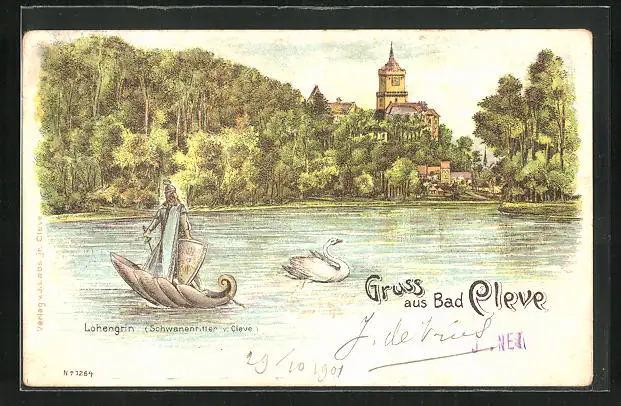 Verlag v. Js. Abs. jr. Cleve
Lohengrin (Schwanenritter v. Cleve)
Gruss
aus Bad Cleve
J. de Vries
29/10 1901
Nº 1264